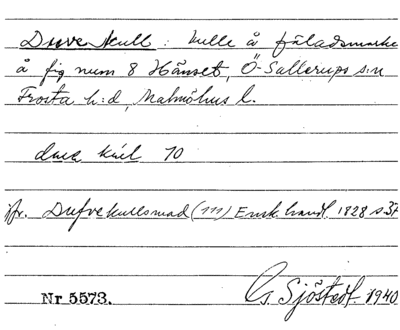 Duvekull : kulle å fäladsmarke
å fig num 8 Hänset, Ö-Sallerups s:n
Frosta h:d, Malmöhus l.
kul 10
jfr. Dufvekullsmad (111) Ensk handl 1828 s 37
Nr 5573.
G. Sjöstedt 1940